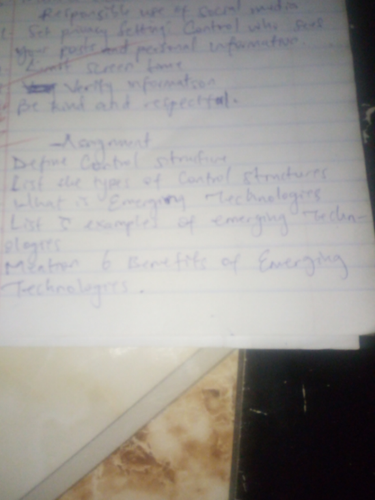 Responsible use of social media
Set privacy settings: Control who sees
your posts and personal information.
Limit screen time
Verify information
Be kind and respectful.
Assignment
Define Control structure
List the types of Control structures
What is Emerging Technologies
List 5 examples of emerging Techn-
ologies
Mention 6 Benefits of Emerging
Technologies.